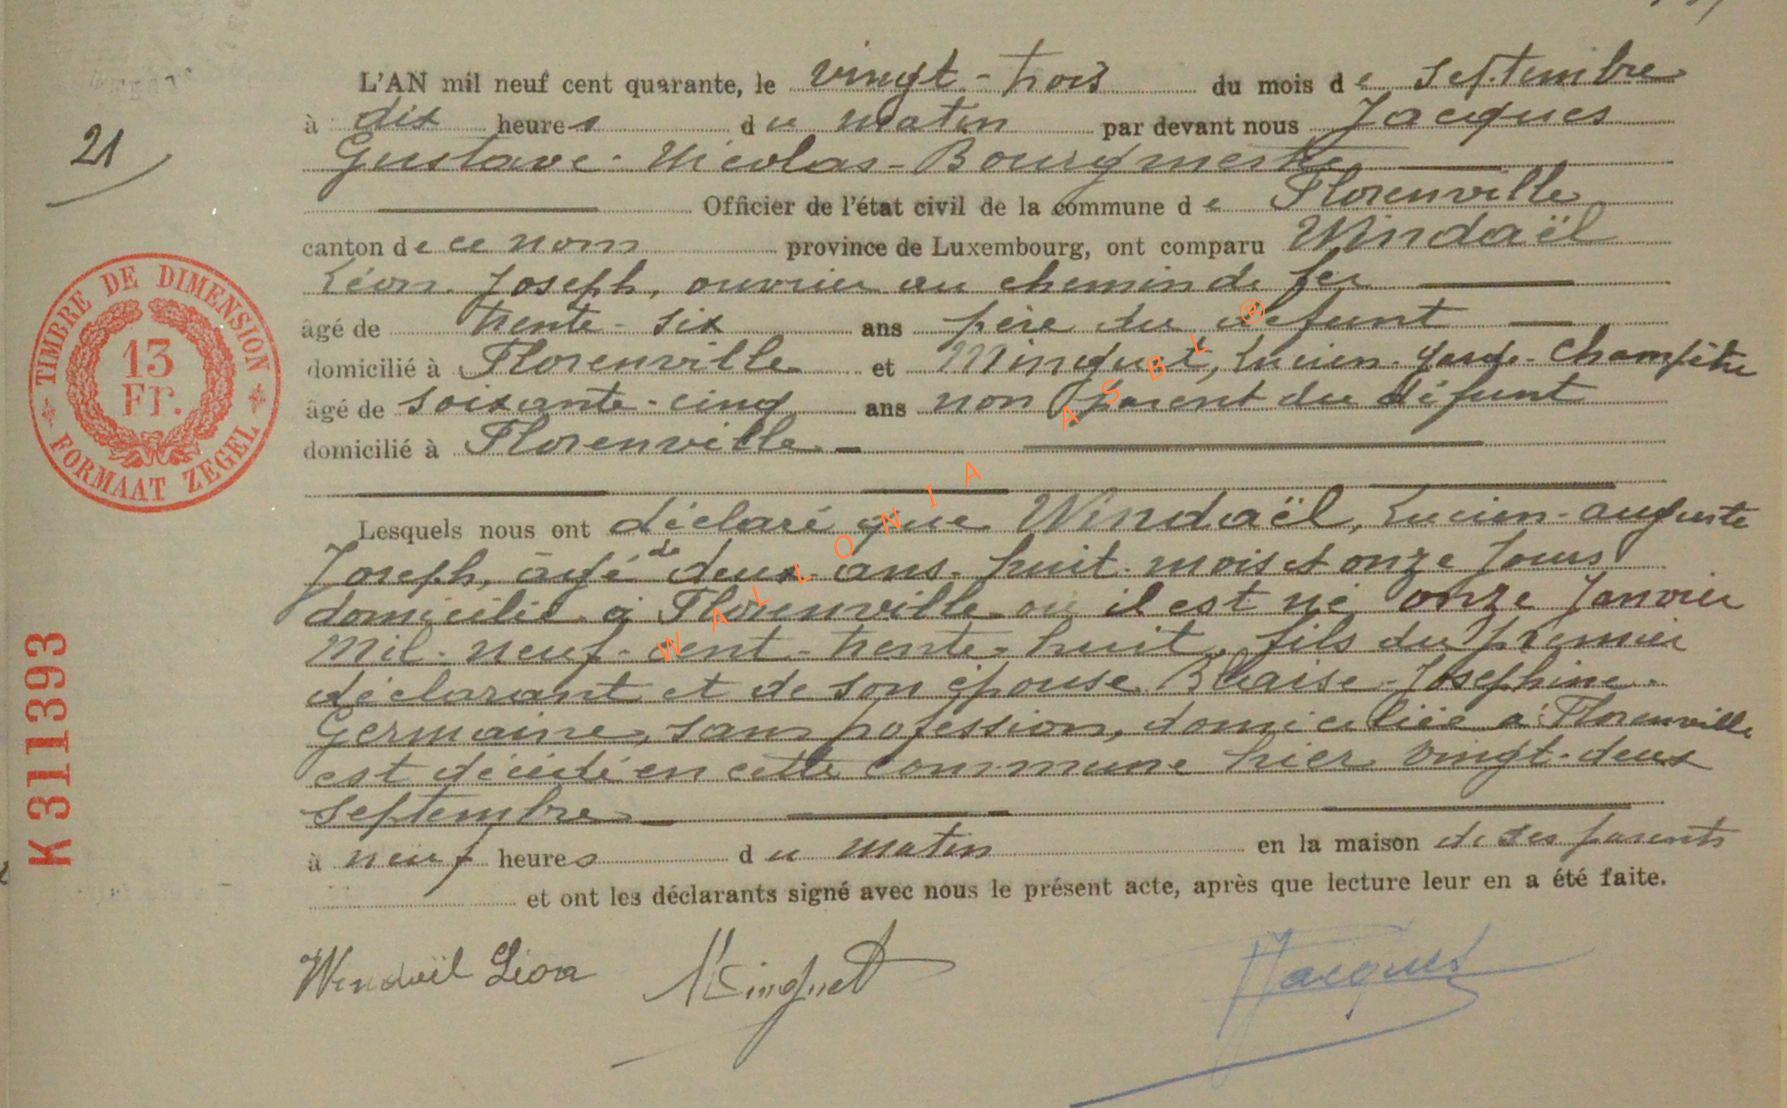 L'AN mil neuf cent quarante, le vingt-trois du mois de septembre
à dix heures du matin par devant nous Jacques
21
Gustave-Nicolas-Bourgmestre
Officier de l'état civil de la commune de Florenville
canton de ce nom province de Luxembourg, ont comparu Windaël
Léon Joseph, ouvrier au chemin de fer
âgé de trente-six ans père du défunt
domicilié à Florenville et Minguet, Lucien-garde-Champêtre
âgé de soixante-cinq ans non parent du défunt
domicilié à Florenville
Lesquels nous ont déclaré que Windaël, Lucien-auguste
Joseph, âgé de deux ans huit mois et onze jours
domicilié à Florenville où il est né onze Janvier
Mil-neuf-cent-trente-huit, fils du premier
déclarant et de son épouse Blaise-Joséphine-
Germaine, sans pofession, domiciliée à Florenville
est décédé en cette commune hier vingt-deux
septembre
à neuf heures du matin en la maison de ses parents
et ont les déclarants signé avec nous le présent acte, après que lecture leur en a été faite.
Windaël Léon Minguet Jacques
TIMBRE DE DIMENSION
13
Fr.
FORMAAT ZEGEL
K311393
WALLONIA ASBL ®